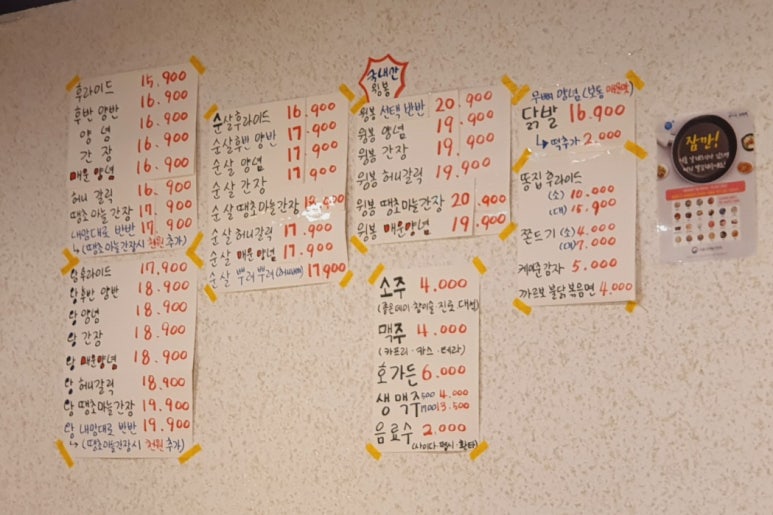 후라이드 15,900
후반 양반 16.900
양념 16.900
간장 16.900
매운양념 16.900
허니갈릭 16.900
땡초마늘간장 17.900
내맘대로 반반 17.900
↳(땡초마늘간장시 천원 추가)
왕후라이드 17,900
왕후반 양반 18.900
왕 양념 18.900
왕 간장 18.900
왕 매운양념 18.900
왕 허니갈릭 18,900
왕 땡초마늘간장 19.900
왕 내맘대로 반반 19.900
↳(땡초마늘간장시 천원 추가)
순살후라이드 16.900
순살후반 양반 17.900
순살 양념 17.900
순살 간장
순살 땡초마늘간장 18.900
순살 허니갈릭 17.900
순살 매운양념 17.900
순살 뿌려뿌려 17900
국내산
윙봉
윙봉 선택 반반 20.900
윙봉 양념 19.900
윙봉 간장 19.900
윙봉 허니갈릭 19.900
윙봉 땡초마늘간장 20.900
윙봉 매운양념 19.900
소주 4.000
맥주 4.000
(카프리·카스·테라)
호가든 6.000
생맥주 500 4.000
1700 13.500
음료수 2.000
무뼈 양념 (보통 매운맛)
닭발 16.900
↳ 떡추가 2.000
똥집 후라이드
(소) 10.000
(대) 15.900
쫀드기 (소) 4.000
(대) 7.000
케네준감자 5.000
까르보불닭볶음면 4.000
잠깐!